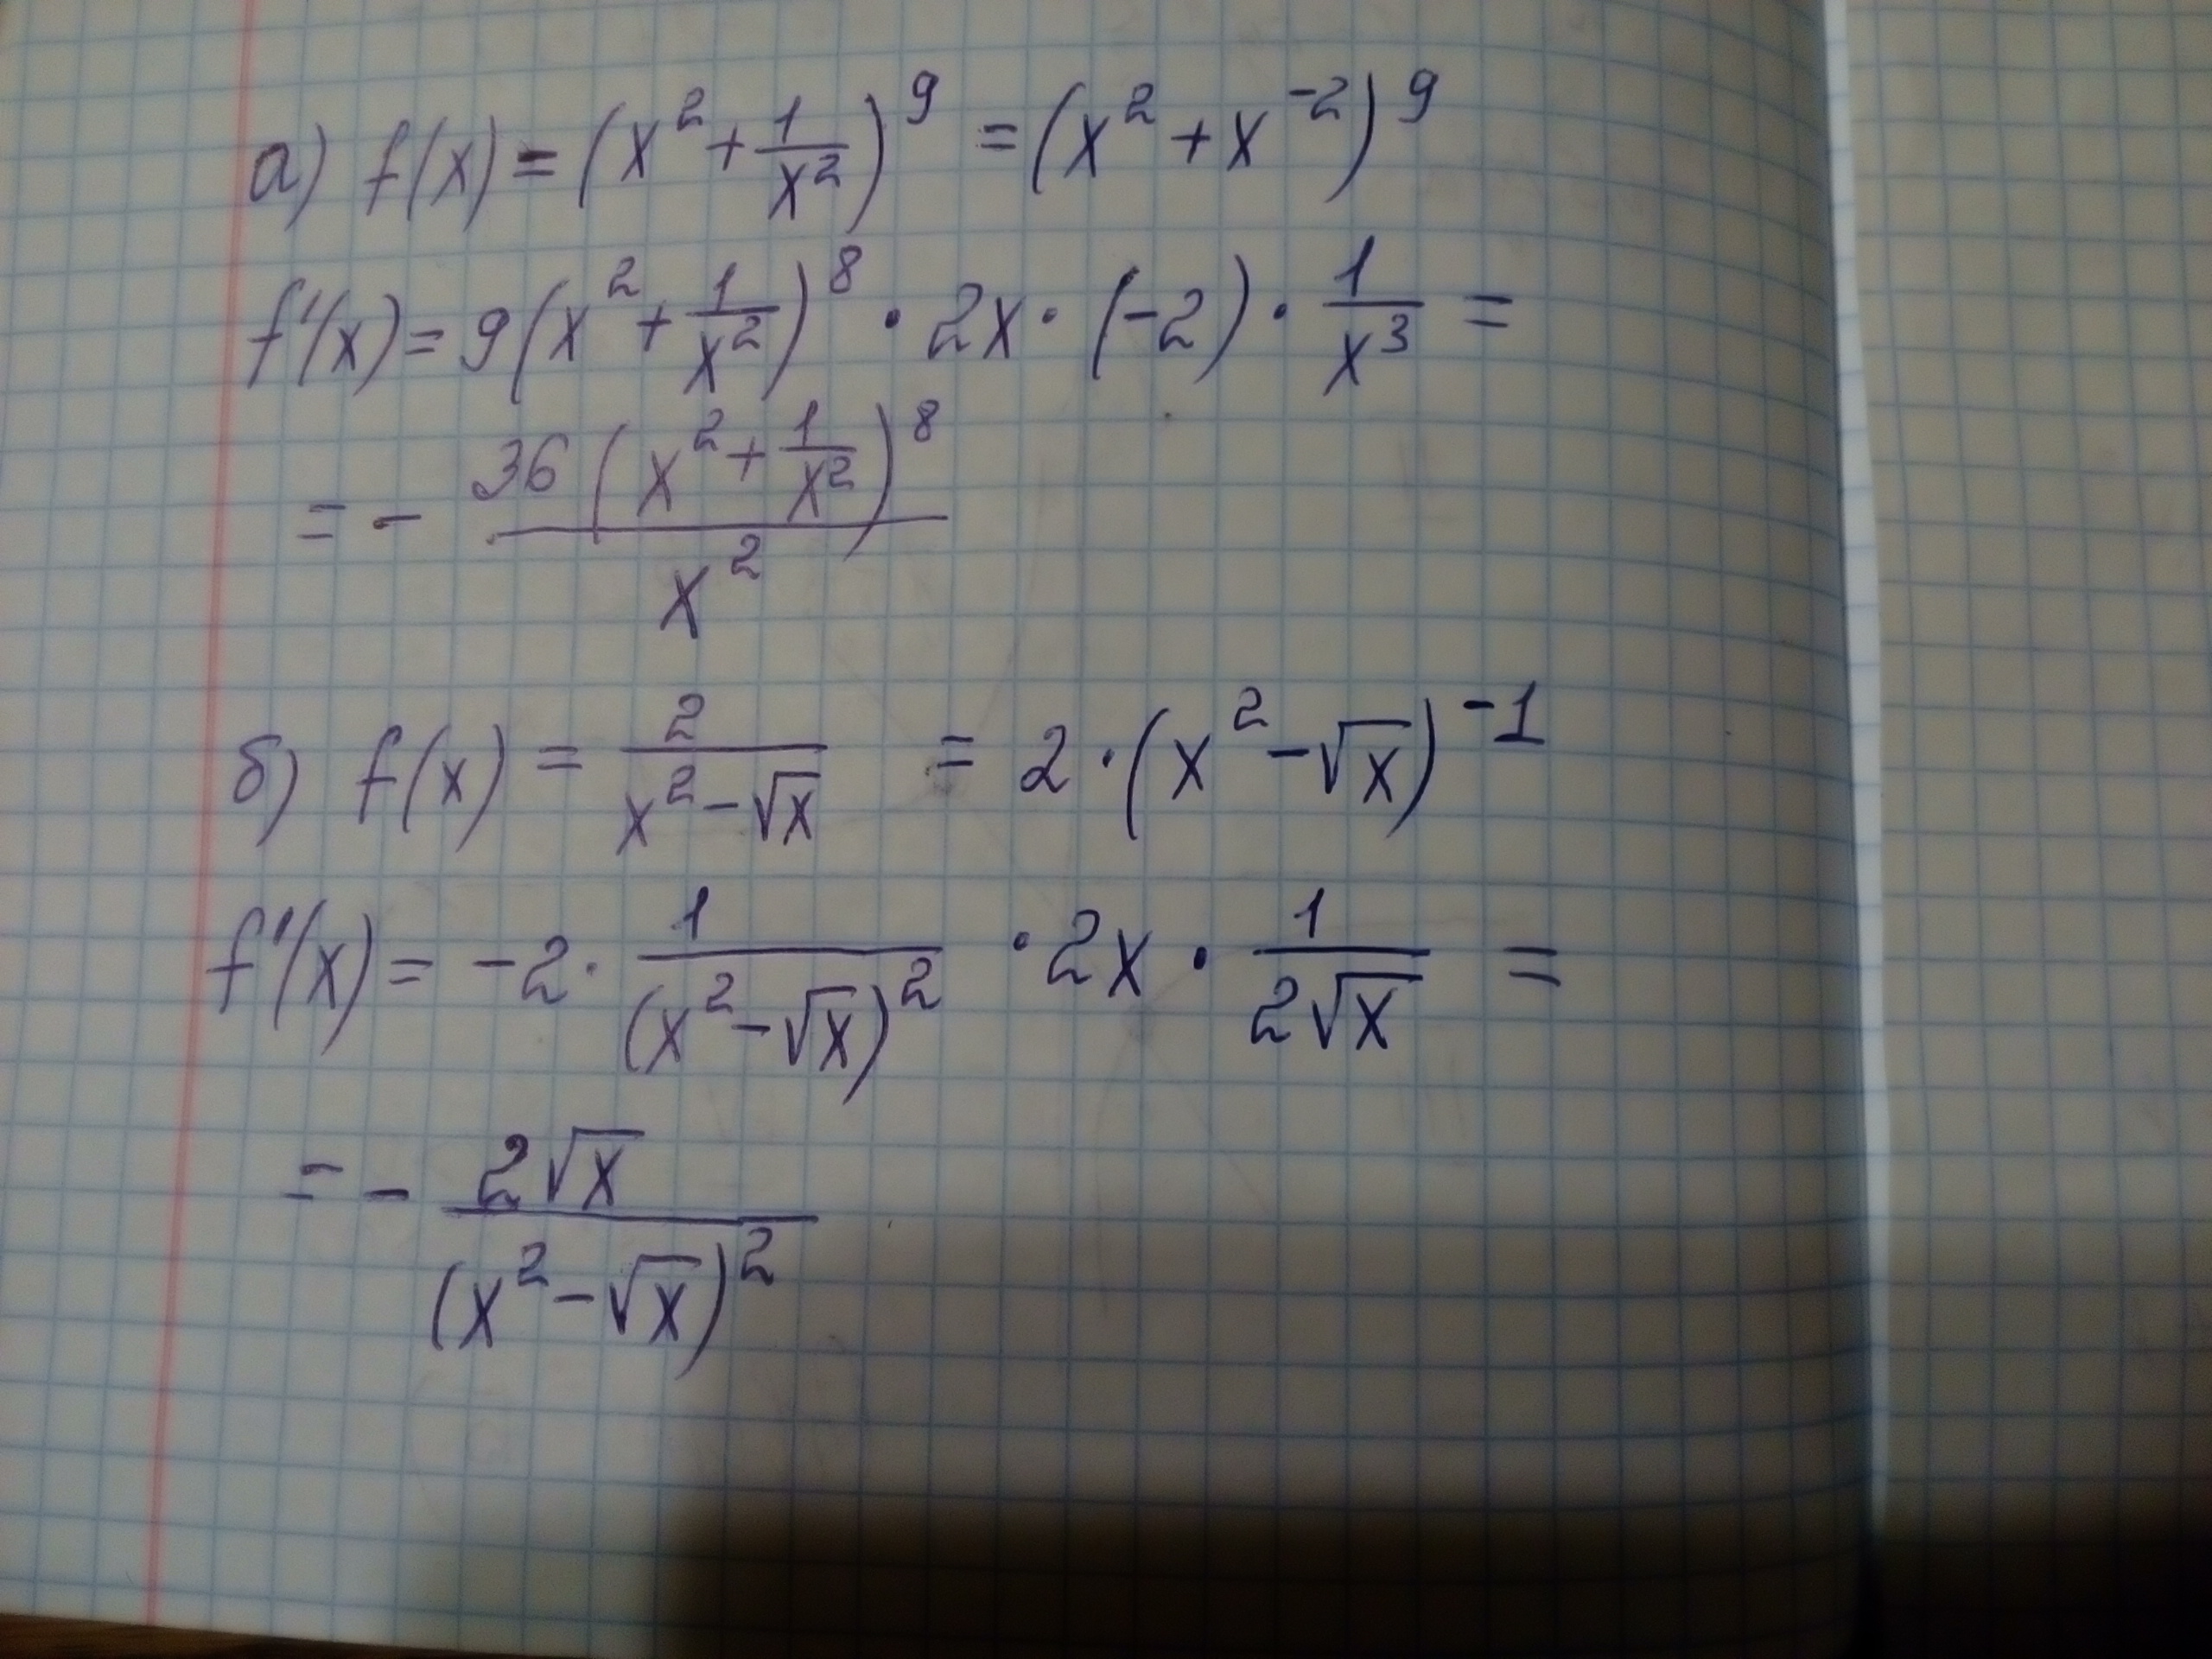 а) f(x) = (x² + 1/x²)⁹ = (x² + x⁻²)⁹
f'(x) = 9(x² + 1/x²)⁸ · 2x · (-2) · 1/x³ =
= - 36(x² + 1/x²)⁸ / x²
б) f(x) = 2/(x² - √x) = 2 · (x² - √x)⁻¹
f'(x) = -2 · 1/(x² - √x)² · 2x · 1/(2√x) =
= - 2√x / (x² - √x)²